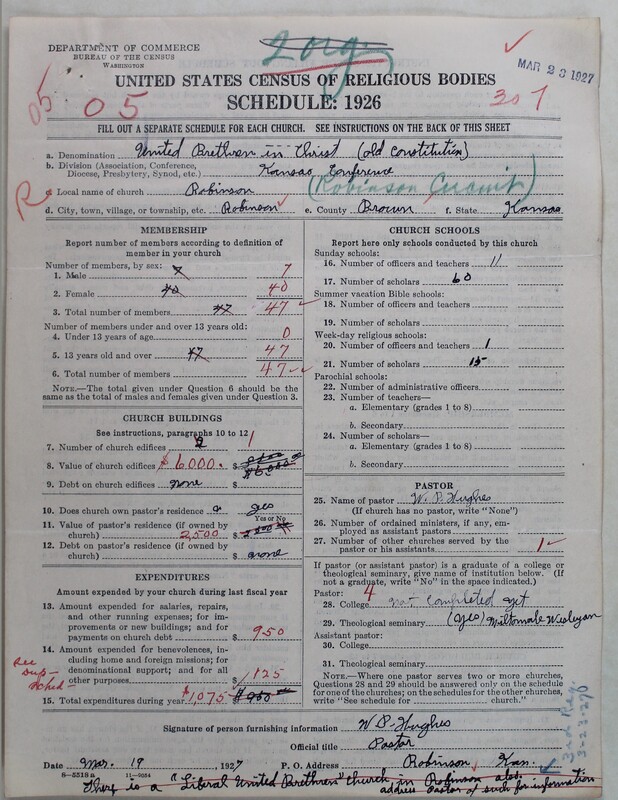 2 org.
DEPARTMENT OF COMMERCE
BUREAU OF THE CENSUS
WASHINGTON
MAR 23 1927
UNITED STATES CENSUS OF RELIGIOUS BODIES
05 05 307
SCHEDULE: 1926
FILL OUT A SEPARATE SCHEDULE FOR EACH CHURCH. SEE INSTRUCTIONS ON THE BACK OF THIS SHEET
a. Denomination United Brethren in Christ (old constitution)
b. Division (Association, Conference,
Diocese, Presbytery, Synod, etc.) Kansas Conference
R c. Local name of church Robinson (Robinson Circuit)
d. City, town, village, or township, etc. Robinson e. County Brown f. State Kansas
MEMBERSHIP
Report number of members according to definition of
member in your church
Number of members, by sex:
1. Male 7 7
2. Female 40 40
3. Total number of members 47 47
Number of members under and over 13 years old:
4. Under 13 years of age 0
5. 13 years old and over 47 47
6. Total number of members 47
NOTE.—The total given under Question 6 should be
the same as the total of males and females given under Question 3.
CHURCH BUILDINGS
See instructions, paragraphs 10 to 12
7. Number of church edifices 2 1
8. Value of church edifices $6000. $ $6000
9. Debt on church edifices none $
10. Does church own pastor's residence? yes
Yes or No
11. Value of pastor's residence (if owned by
church) 2,500 $ 2500
12. Debt on pastor's residence (if owned by
church) $ none
EXPENDITURES
Amount expended by your church during last fiscal year
13. Amount expended for salaries, repairs,
and other running expenses; for im-
provements or new buildings; and for
payments on church debt $ 950
14. Amount expended for benevolences,
including home and foreign missions; for
denominational support; and for all
other purposes $ 125
See
Sup-
Sched-
15. Total expenditures during year $1,075 $
CHURCH SCHOOLS
Report here only schools conducted by this church
Sunday schools:
16. Number of officers and teachers 11
17. Number of scholars 60
Summer vacation Bible schools:
18. Number of officers and teachers
19. Number of scholars
Week-day religious schools:
20. Number of officers and teachers 1
21. Number of scholars 15
Parochial schools:
22. Number of administrative officers
23. Number of teachers—
a. Elementary (grades 1 to 8)
b. Secondary
24. Number of scholars—
a. Elementary (grades 1 to 8)
b. Secondary
PASTOR
25. Name of pastor W. P. Hughes
(If church has no pastor, write "None")
26. Number of ordained ministers, if any, em-
ployed as assistant pastors
27. Number of other churches served by the
pastor or his assistants 1
If pastor (or assistant pastor) is a graduate of a college or
theological seminary, give name of institution below. (If
not a graduate, write "No" in the space indicated.)
Pastor: 4
28. College not completed yet
29. Theological seminary (yes) Miltonvale Wesleyan
Assistant pastor:
30. College
31. Theological seminary
NOTE.—Where one pastor serves two or more churches,
Questions 28 and 29 should be answered only on the schedule
for one of the churches; on the schedules for the other churches,
write "See schedule for church."
Signature of person furnishing information W P Hughes
Official title Pastor
Date Mar. 19 1927 P. O. Address Robinson Kan.
8—5518a 11—9054
There is a "Liberal United Brethren" church in Robinson also.
address Pastor of such for information